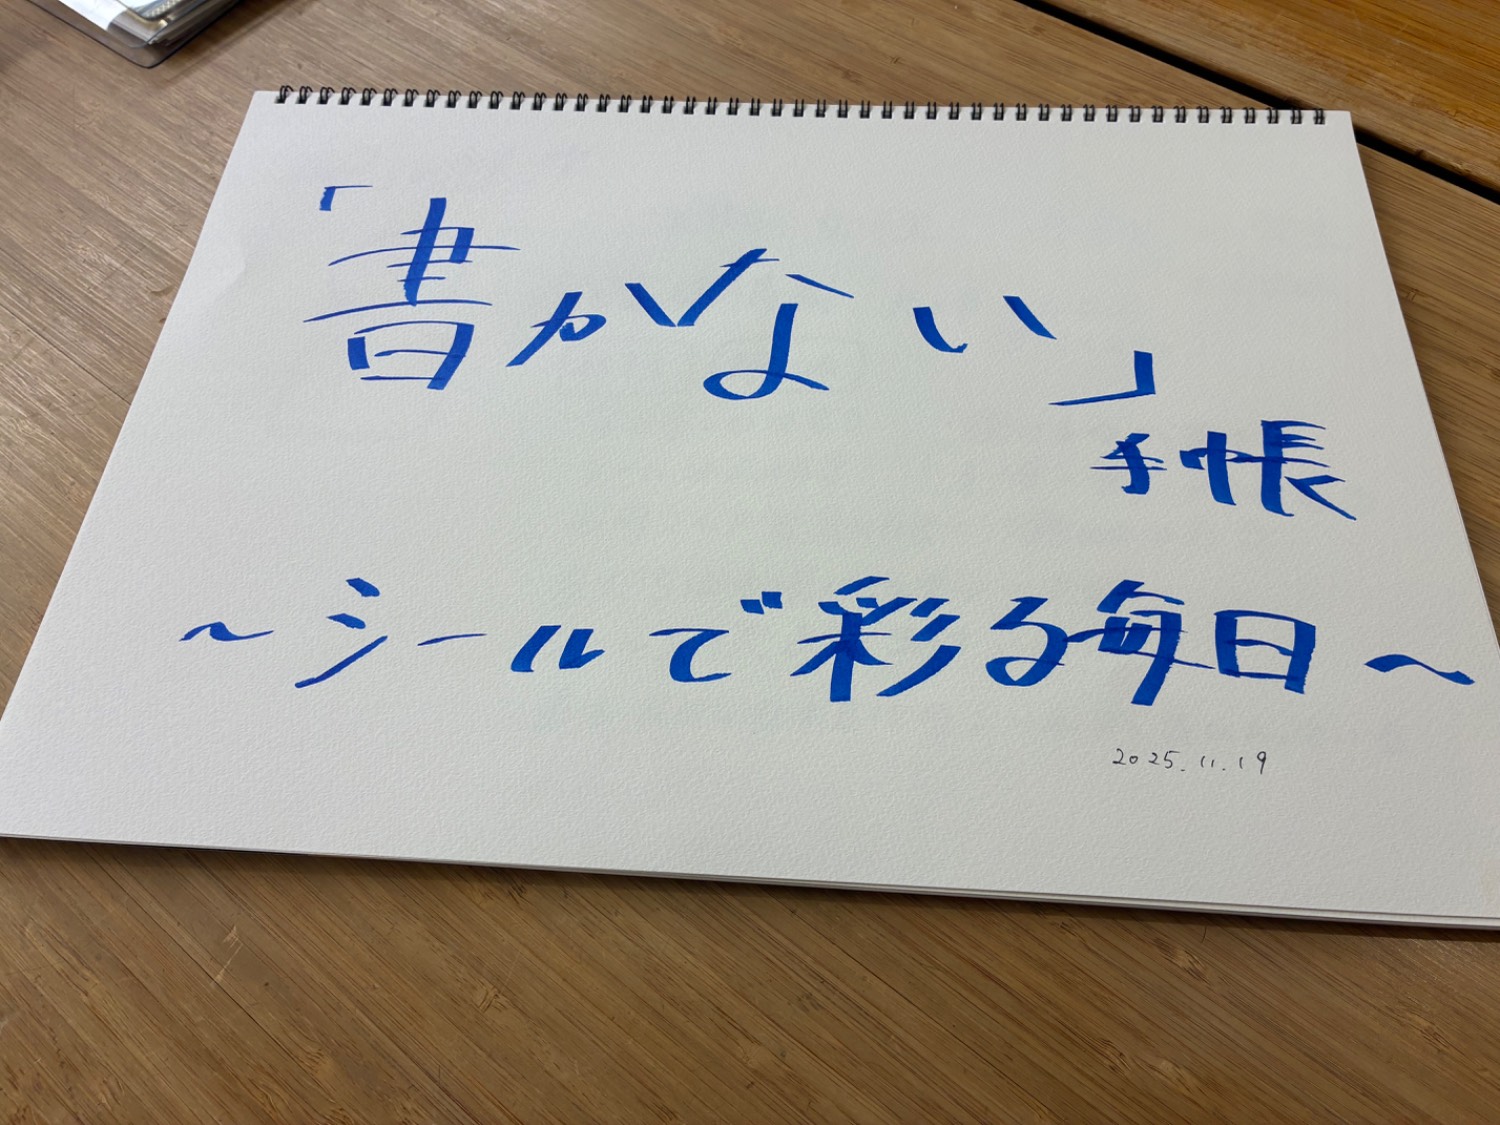 「書かない」
手帳
～シールで彩る毎日～
2025.11.19